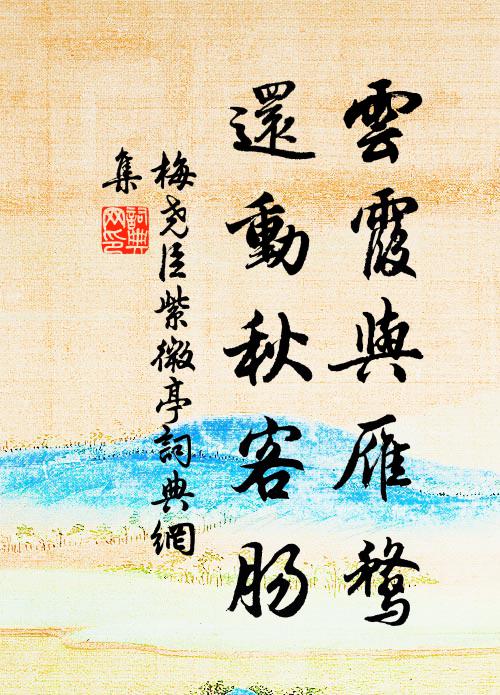 雲霞與雁鶩
還動秋客腸
梅堯臣紫微亭詞典網
集
詞典
网印